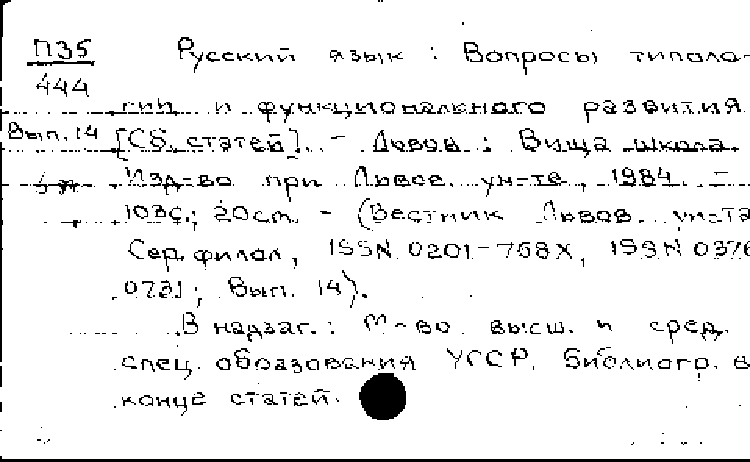 П35 Русский язык : Вопросы типоло-
444
гии и функционального развития.
Вып. 14 [Сб. статей]. - Львов : Вища школа.
Изд-во при Львов. ун-те, 1984. -
103с.; 20см. - (Вестник Львов. ун-та
Сер. филол, ISSN 0201-758X, ISSN 0376
0721; Вып. 14).
В надзаг.: М-во высш. и сред.
спец. образования УССР. Библиогр. в
конце статей.